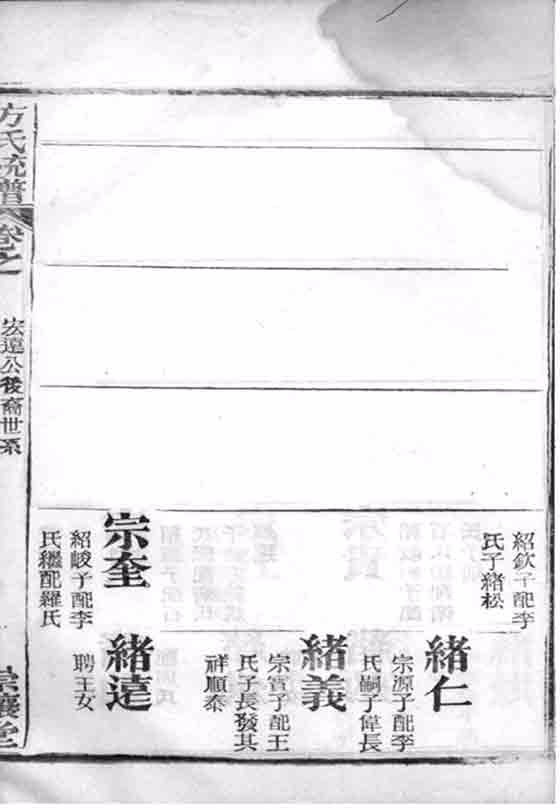 紹欽子配李
氏子緒松
宗奎
紹峻子配李
氏繼配羅氏
緒仁
宗源子配李
氏嗣子偉長
緒義
宗賓子配王
氏子長發其
祥順泰
緒遠
聘王女
方氏統譜
卷之一
宏遠公後裔世系